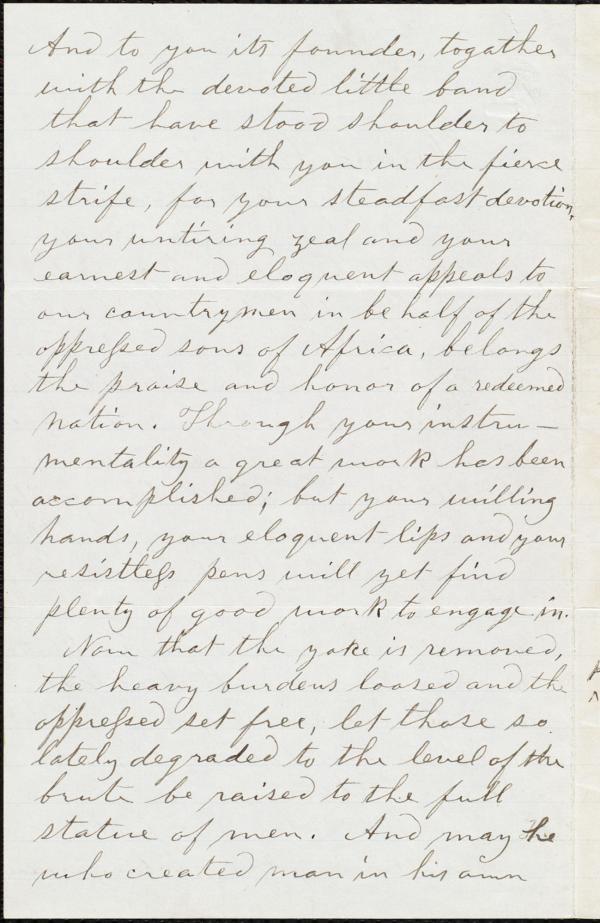 And to you its founder, togather
with the devoted little band
that have stood shoulder to
shoulder with you in the fierce
strife, for your steadfast devotion,
your untiring zeal and your
earnest and eloquent appeals to
our countrymen in be half of the
oppressed sons of Africa, belongs
the praise and honor of a redeemed
nation. Through your instru-
mentality a great work has been
accomplished; but your willing
hands, your eloquent lips and your
resistless pens will yet find
plenty of good work to engage in.
Now that the yoke is removed,
the heavy burdens loosed and the
oppressed set free, let those so
lately degraded to the level of the
brute be raised to the full
statue of men. And may he
who created man in his own